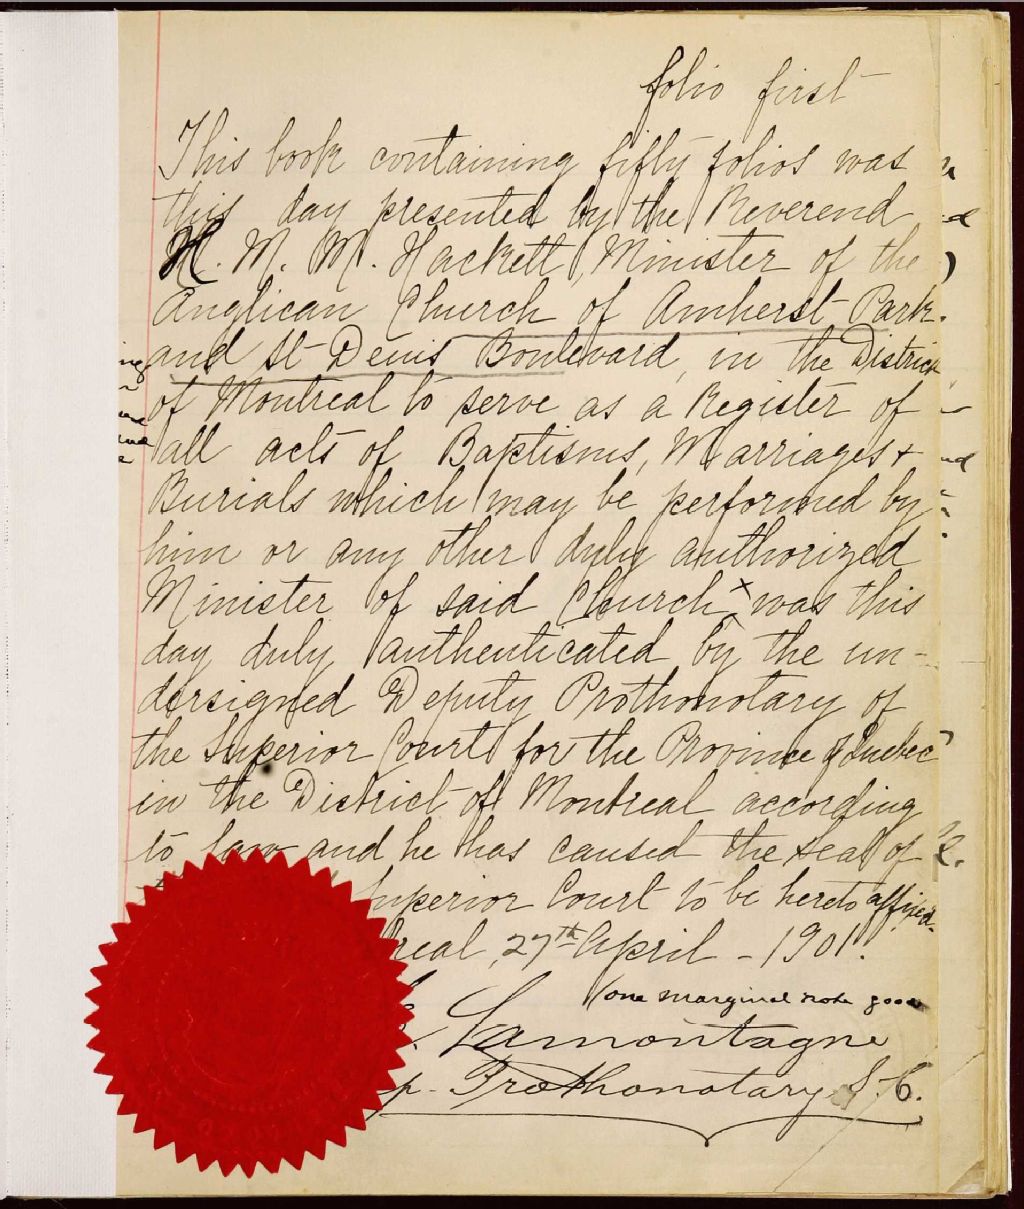 folio first
This book containing fifty folios was
this day presented by the Reverend
H. M. M. Hackett, Minister of the
Anglican Church of Amherst Park
and St Denis Boulevard, in the District
of Montreal to serve as a Register of
all acts of Baptisms, Marriages +
Burials which may be performed by
him or any other duly authorized
Minister of said Church, x was this
day duly authenticated by the un-
dersigned Deputy Prothonotary of
the Superior Court for the Province of Quebec
in the District of Montreal according
to law and he has caused the seal of
Superior Court to be hereto affixed.
real, 27th April - 1901.
(one marginal note good
Lamontagne
p. Prothonotary S. C.